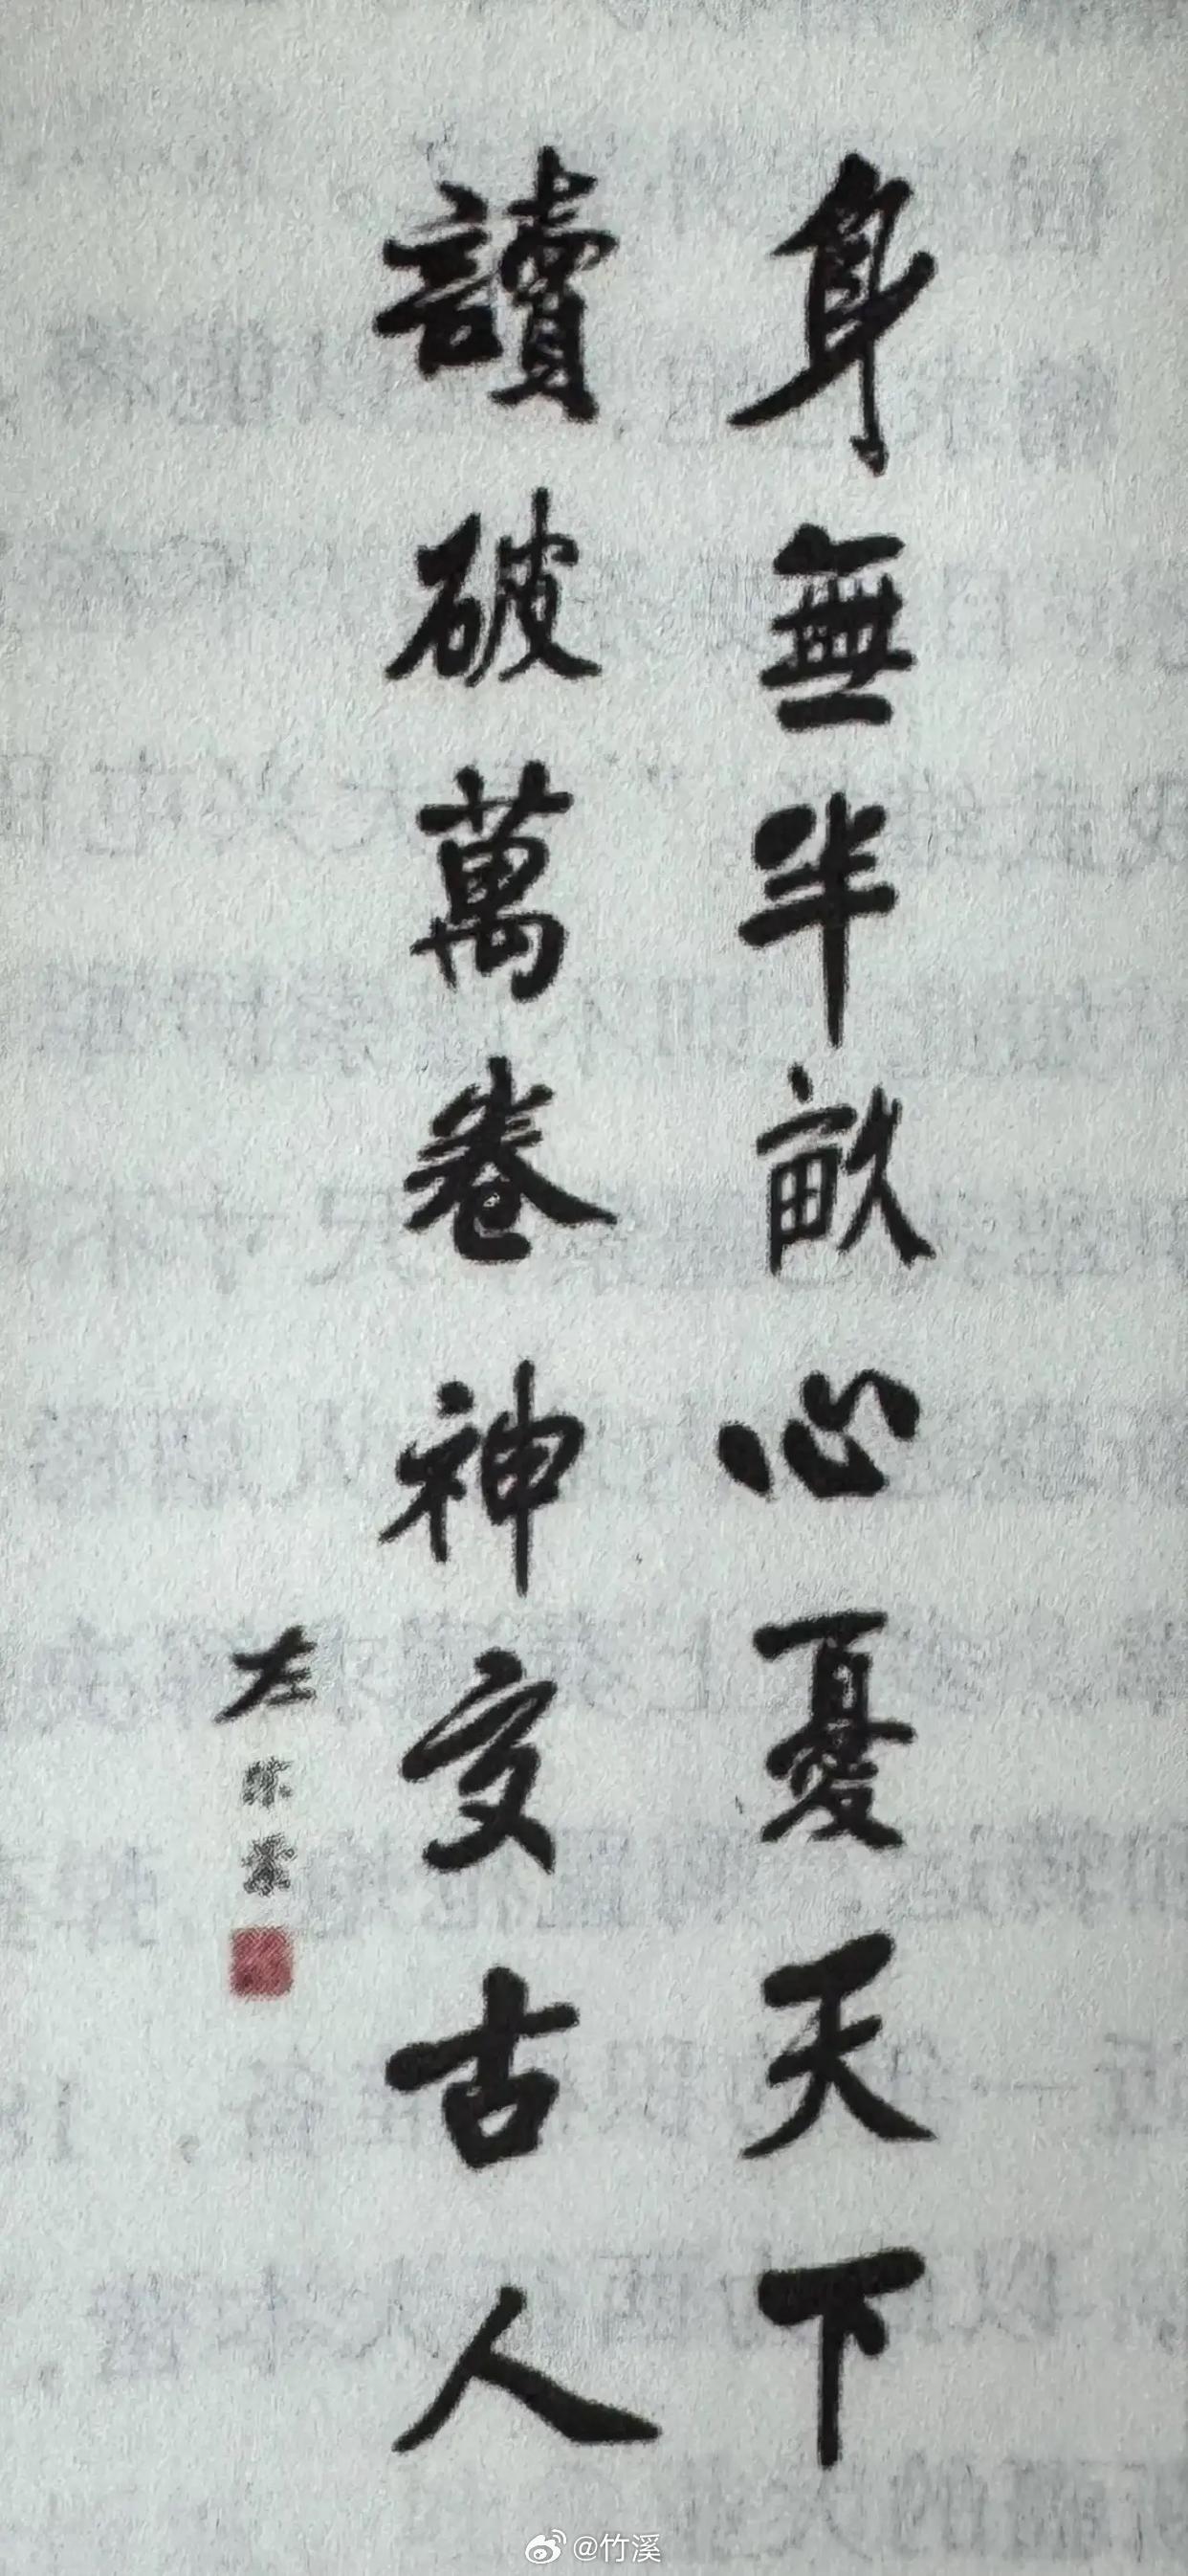 身無半畝心憂天下
讀破萬卷神交古人
左宗棠
@竹溪